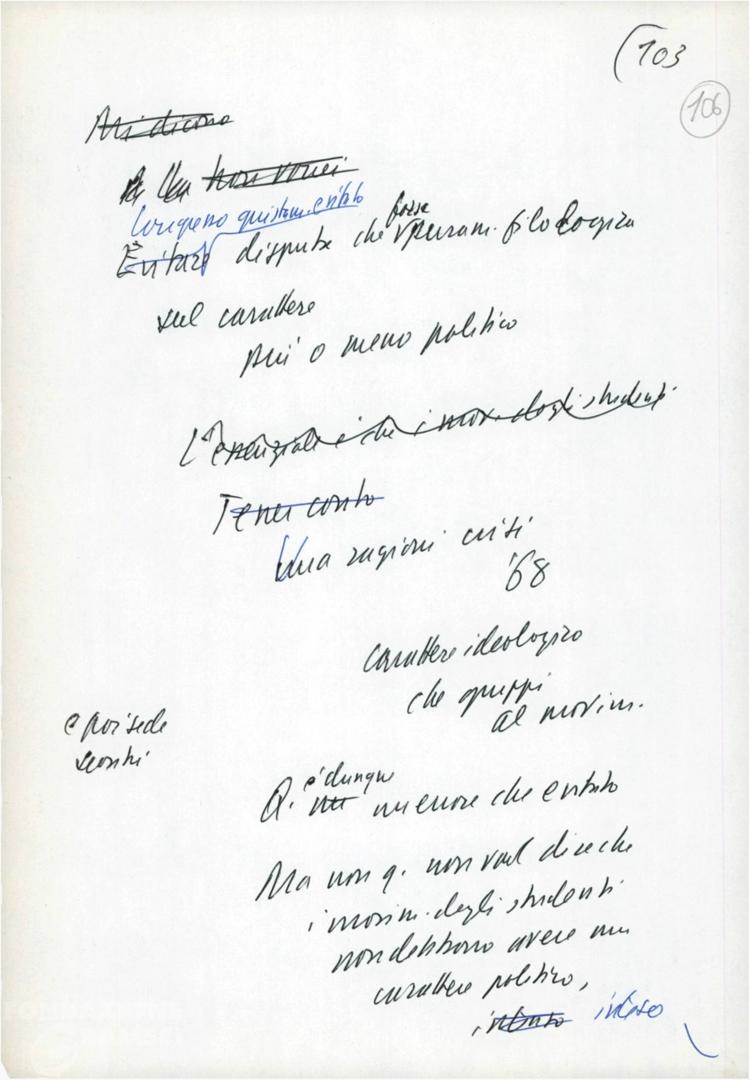 103
106
Mi dicono
Ma non vorrei
Congresso giustam. evitato
Evitare dispute che forse puram. filologica
sul carattere
più o meno politico
L'essenziale è che i mov. degli studenti
Tener conto
Una ragioni crisi
'68
carattere ideologico
che gruppi
al movim.
e poi sede
scontri
Q. è dunque un errore che evitato
Ma non q. non vuol dire che
i movim. degli studenti
non debbono avere un
carattere politico,
inteso